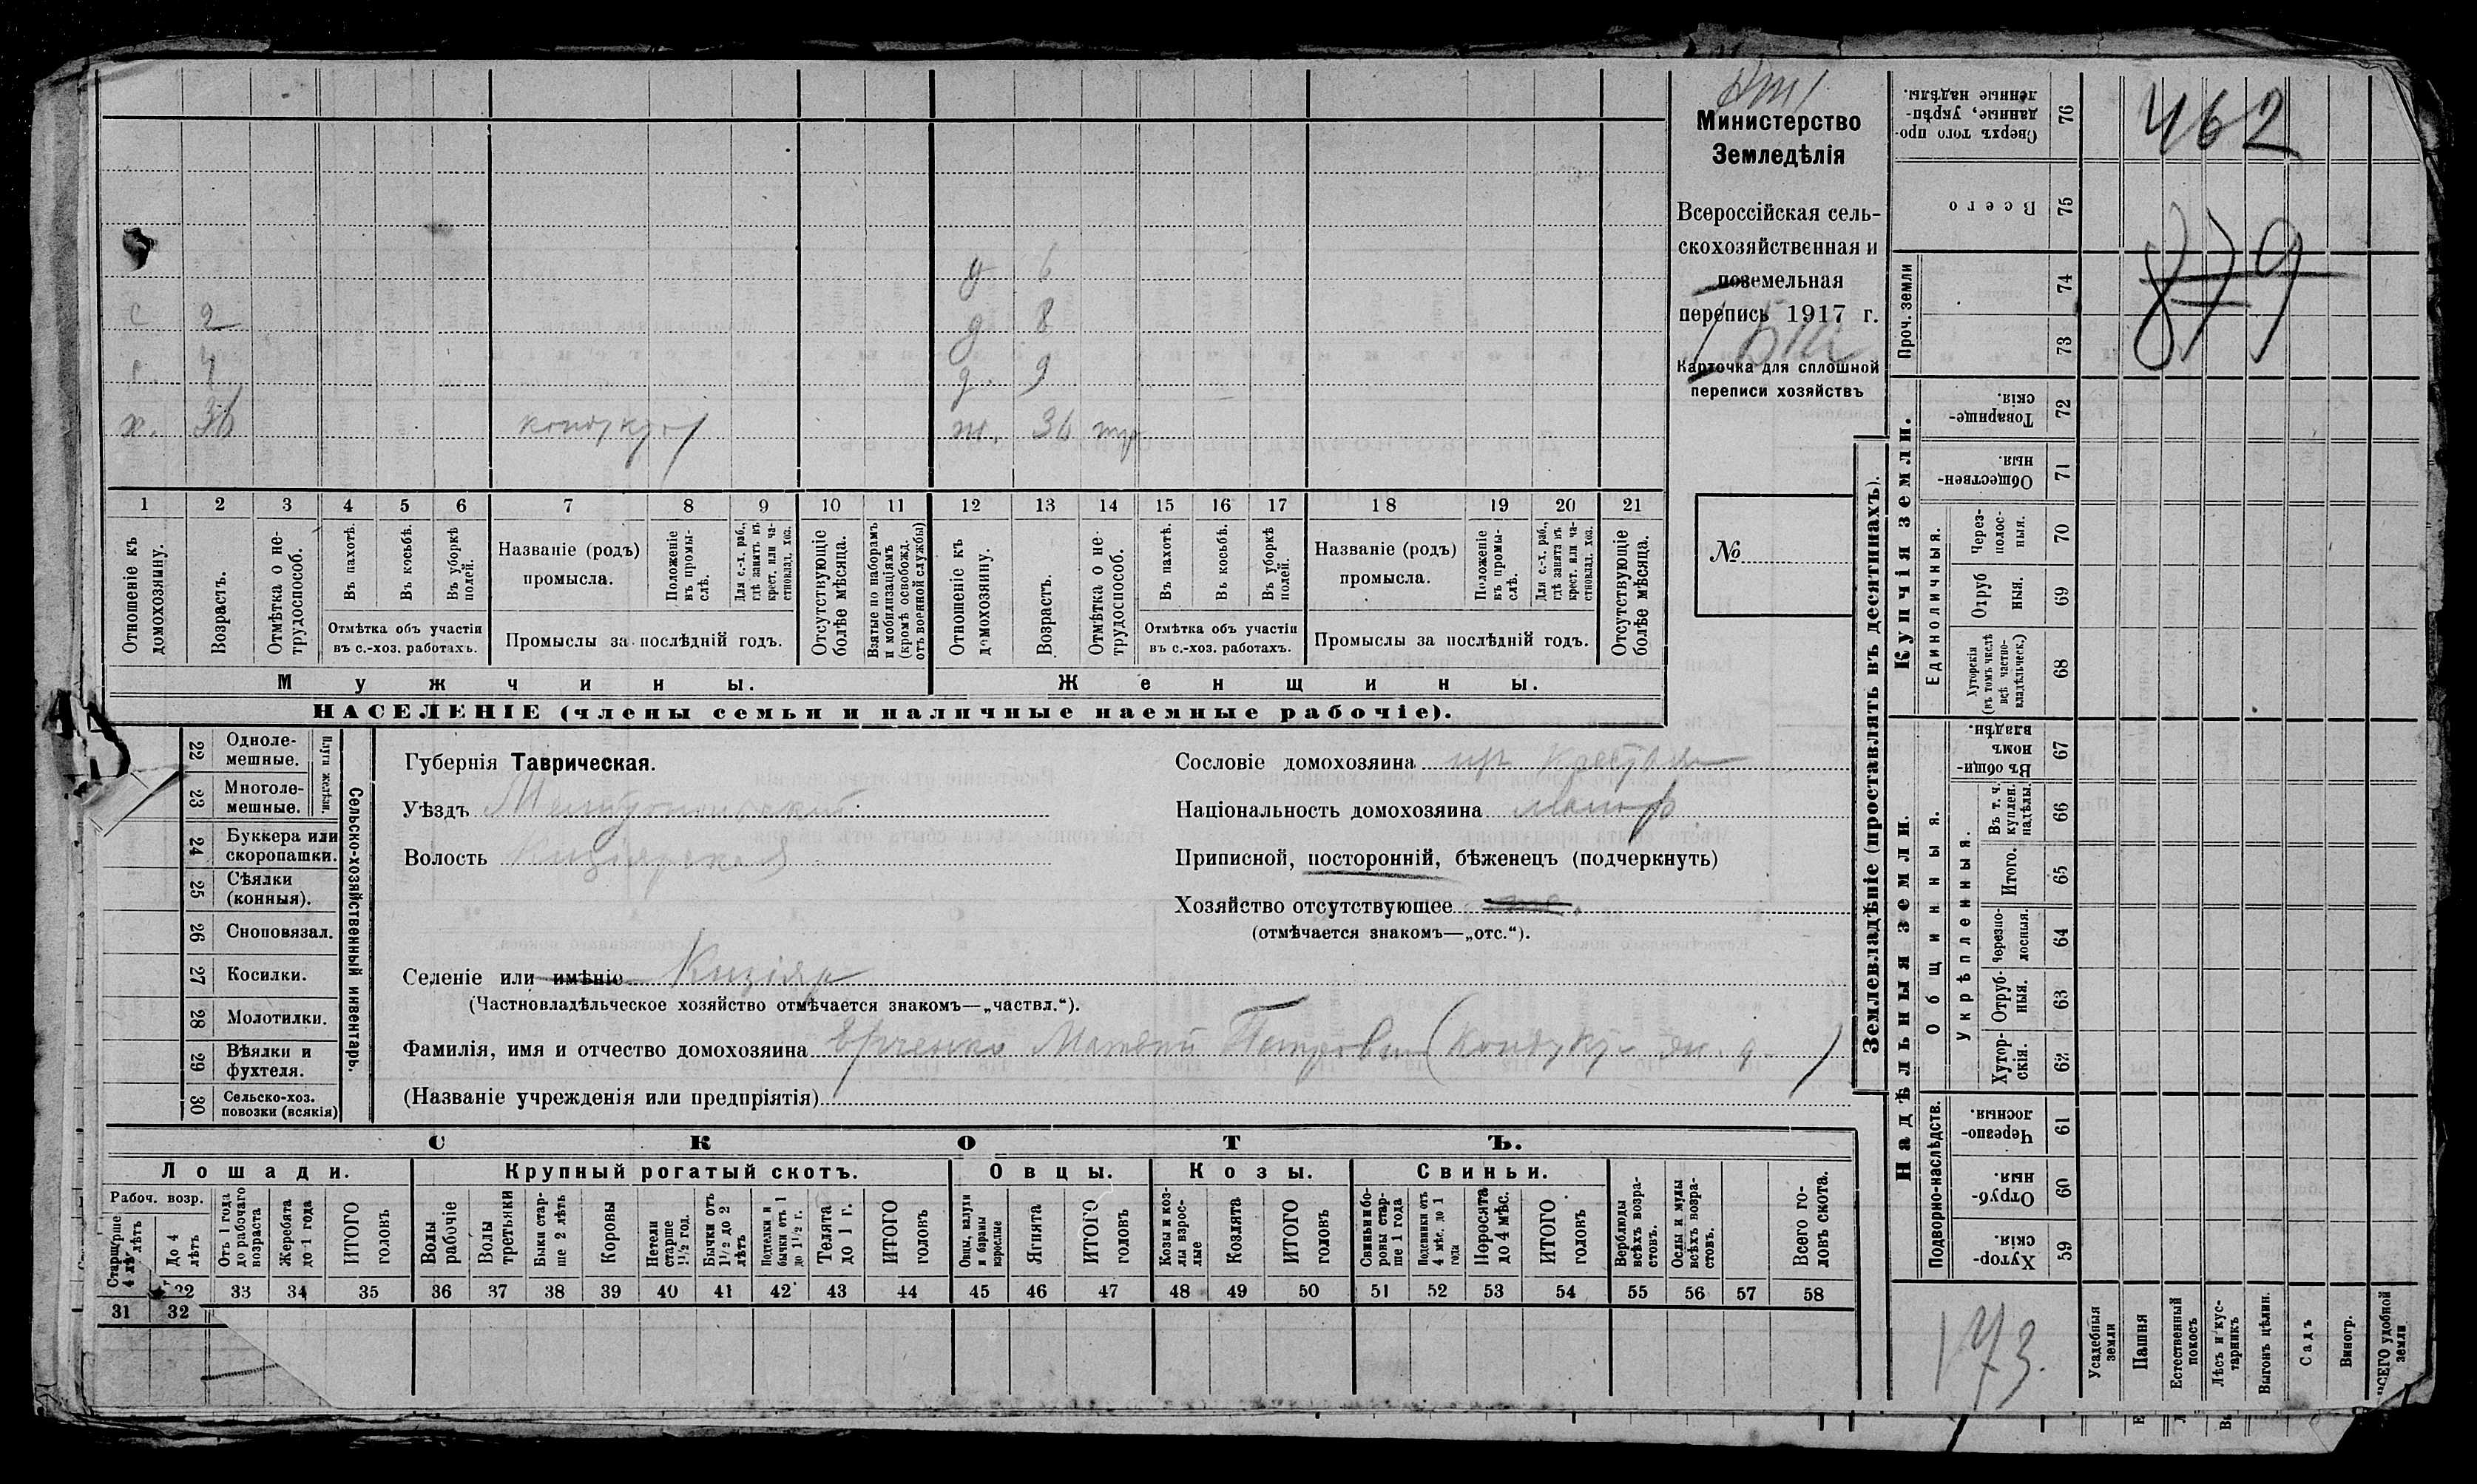 462
879
173.
Министерство
Земледѣлія
Всероссійская сель-
скохозяйственная и
поземельная
перепись 1917 г.
Карточка для сплошной
переписи хозяйствъ
№
д 6
с 2 д 8
с. 4 д. 9
х. 36 кондукт ж. 36
1 2 3 4 5 6 7 8 9 10 11 12 13 14 15 16 17 18 19 20 21
Отношеніе къ домохозяину.
Возрастъ.
Отмѣтка о не-трудоспособ.
Въ пахотѣ.
Въ косьбѣ.
Въ уборкѣ полей.
Отмѣтка объ участіи
въ с.-хоз. работахъ.
Названіе (родъ)
промысла.
Положеніе въ промы-слѣ.
Для с.-х. раб., гдѣ занятъ въ крест. или ча-стновлад. хоз.
Промыслы за послѣдній годъ.
Отсутствующіе болѣе мѣсяца.
Взятые по наборамъ и мобилизаціямъ (кромѣ освобожд. отъ военной службы)
Отношеніе къ домохозяину.
Возрастъ.
Отмѣтка о не-трудоспособ.
Въ пахотѣ.
Въ косьбѣ.
Въ уборкѣ полей.
Отмѣтка объ участіи
въ с.-хоз. работахъ.
Названіе (родъ)
промысла.
Положеніе въ промы-слѣ.
Для с.-х. раб., гдѣ занята въ крест. или ча-стновлад. хоз.
Промыслы за послѣдній годъ.
Отсутствующіе болѣе мѣсяца.
Мужчины. Женщины.
НАСЕЛЕНІЕ (члены семьи и наличные наемные рабочіе).
22 Одноле-мешные.
23 Многоле-мешные.
24 Буккера или скоропашки.
25 Сѣялки (конныя).
26 Сноповязал.
27 Косилки.
28 Молотилки.
29 Вѣялки и фухтеля.
30 Сельско-хоз. повозки (всякія)
Сельско-хозяйственный инвентарь.
Губернія Таврическая.
Уѣздъ Мелитопольскій
Волость Кизіярская
Сословіе домохозяина кр. крестьян
Національность домохозяина малор
Приписной, посторонній, бѣженецъ (подчеркнуть)
Хозяйство отсутствующее
(отмѣчается знакомъ—„отс.“).
Селеніе или имѣніе Кизіяр
(Частновладѣльческое хозяйство отмѣчается знакомъ—„частвл.“).
Фамилія, имя и отчество домохозяина Юрченко Матвей Петрович (кондук. жел. д.)
(Названіе учрежденія или предпріятія)
СКОТЪ.
Лошади. Крупный рогатый скотъ. Овцы. Козы. Свиньи.
Рабоч. возр.
Старше 4 лѣтъ
До 4 лѣтъ
Отъ 1 года до рабочаго возраста
Жеребята до 1 года
ИТОГО головъ
Волы рабочіе
Волы третьяки
Быки стар-ше 2 лѣтъ
Коровы
Нетели старше 1½ год.
Бычки отъ 1½ до 2 лѣтъ
Подтелки и бычки отъ 1 до 1½ г.
Телята до 1 г.
ИТОГО головъ
Овцы, валухи и бараны взрослые
Ягнята
ИТОГО головъ
Козы и коз-лы взрос-лые
Козлята
ИТОГО головъ
Свиньи и бо-ровы стар-ше 1 года
Подсвинки отъ 4 мѣс. до 1 года
Поросята до 4 мѣс.
ИТОГО головъ
Верблюды всѣхъ возра-стовъ.
Ослы и мулы всѣхъ возра-стовъ.
Всего го-ловъ скота.
32 33 34 35 36 37 38 39 40 41 42 43 44 45 46 47 48 49 50 51 52 53 54 55 56 57 58
31 32
Землевладѣніе (проставлять въ десятинахъ).
Надѣльныя земли. Купчія земли. Проч. земли
Подворно-наслѣдств.
Общинныя.
Укрѣпленныя.
Единоличныя.
Хутор-скія. 59
Отруб-ныя. 60
Черезпо-лосныя. 61
Хутор-скія. 62
Отруб-ныя. 63
Черезпо-лосныя. 64
Итого. 65
Въ т. ч. куплен. надѣлы. 66
Въ общин-номъ владѣн. 67
Хуторскія (въ томъ числѣ всѣ частно-владѣльческ.) 68
Отруб ныя. 69
Через-полос-ныя. 70
Обществен-ныя. 71
Товарище-скія. 72
73
74
Всего 75
Сверхъ того про-данные, укрѣп-ленные надѣлы. 76
Усадебныя земли
Пашня
Естественный покосъ
Лѣсъ и кус-тарникъ
Выгонъ цѣлин.
Садъ
Виногр.
ВСЕГО удобной земли